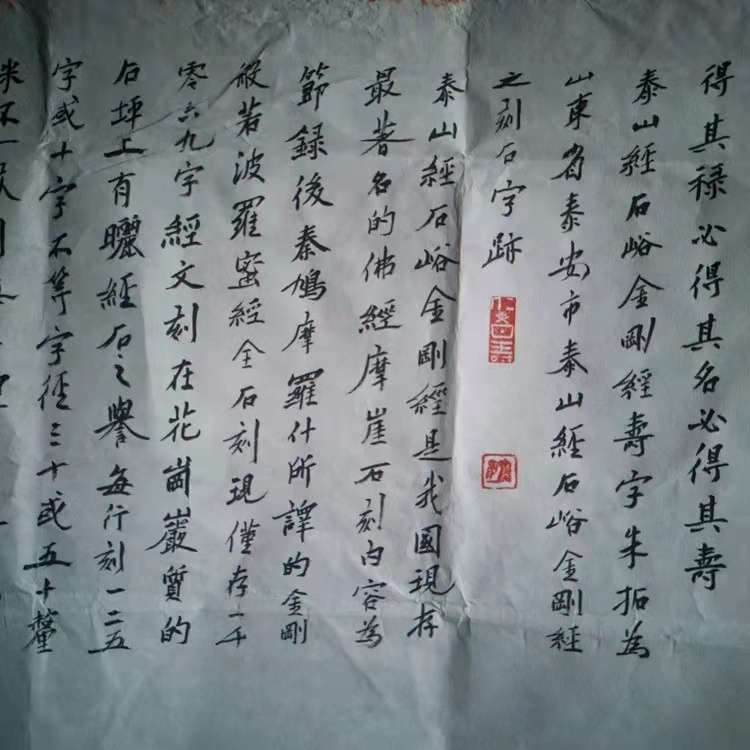 得其禄必得其名必得其壽
泰山經石峪金剛經壽字朱拓為
山東省泰安市泰山經石峪金剛經
之刻石字跡
泰山經石峪金剛經是我國現存
最著名的佛經摩崖石刻内容為
節録後秦鳩摩羅什所譯的金剛
般若波羅蜜經全石刻現僅存一千
零六九字經文刻在花崗巖質的
石坪上有曬經石之譽每行刻一二五
字或十字不等字徑三十或五十釐
米不一